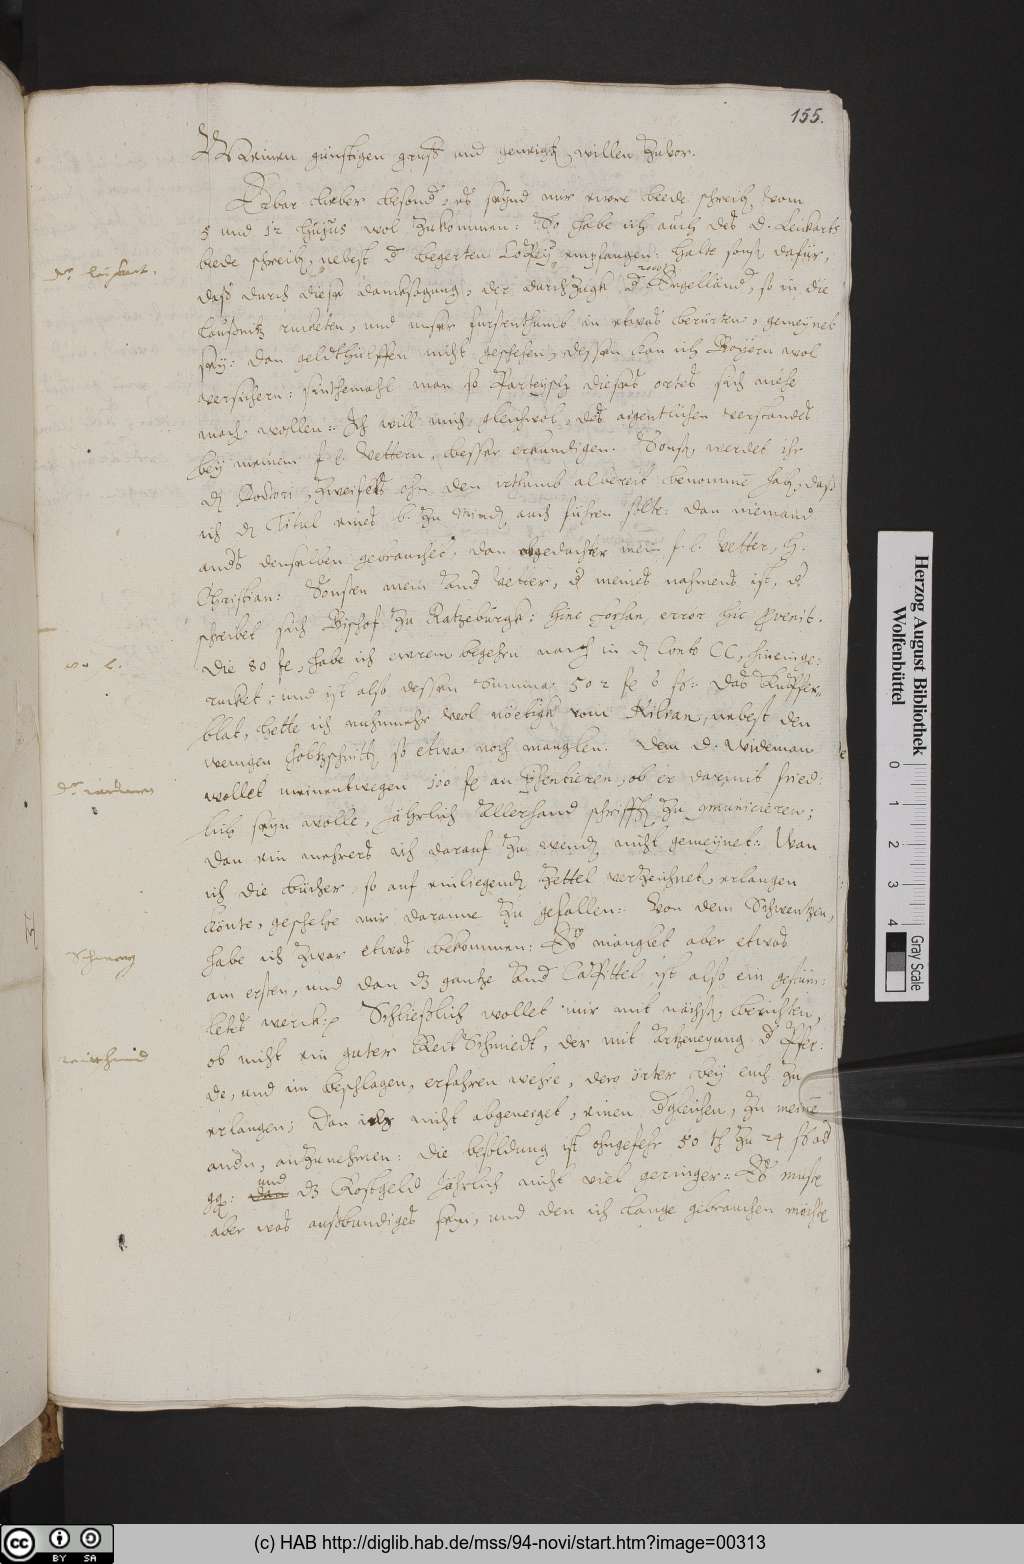 155.
Meinen günstigen gruß und geneigtē willen zuvor.
Erbar lieber besonder, es seynd mir ewre beede schreibē vom
5 und 12 hujus wol zukommen: So habe ich auch des D. Leukarts
beede schreibē, nebest d begerten Copey empfangen: halte sonst dafür,
daß durch diese danksagung, der durchzugk d Engelländ, so in die
Laußnitz rucketen, und unser furstenthumb in etwas berürten, gemeynet
sey: Dan geldthülffen nicht geschehen, dessen kan ich Bayern wol
versichern: sinthemahl man so Parteysch dieses ortes sich nicht
machē wollen: Ich will mich gleichwol, des eigentlichen verstandes
bey meinem f. l. Vettern, besser erkundigen. Sonst, werdet ihr
dē Doctori, zweifels ohn den irthumb albereit benommē habē, daß
ich dē Titul eines b. zu Mindē auch führen solte: dan niemand
anders denselben gebrauchet, dan obgedachter mein f. l. Vetter, H.
Christian: Sonsten mein Vetter, d meines nahmens ist, d
schreibet sich Bischof zu Ratzeburgk: hinc forsan error hic pvenit.
Die 80 fe, habe ich ewrem begehrn nach in dē Conto CC, hineinge:
rucket; und ist also dessen Summa, 502 fe 6 ß: Das Kupffer
blat, hette ich nuhnmehr wol nöetigk vom Kilian, nebest den
wenigen holtzschnittē, so etwa noch manglen. Dem D. Wideman
wollet meinentwegen 100 fe an psentieren, ob er darmit fried:
lich seyn wolle, Jährlich allerhand schrifftē zu cmunicieren;
dan ein mehrers ich darauf zu wendē nicht gemeynet: Wan
ich die bücher, so auf einliegendē Zettel verzeichnet, erlangen
könte, geschehe mir daranne zu gefallen: Von dem Schwentzen,
habe ich zwar etwas bekommen: Es manglet aber etwas
am ersten, und dan dz gantze Capittel, ist also ein gestüm:
letes werck. Schließlich wollet mir mit nächstē berichten,
ob nicht ein guter Reit Schmiedt, der mit artzeneyung d Pfer:
de, und im beschlagen, erfahren wehre, dero örter bey euch zu
erlangen; Dan ich nicht abgeneiget, einen dgleichen, zu meinē
andn, anzunehmen: die besoldung ist ohngefehr 50 th zu 24
gg: und dz Kostgeld Jährlich nicht viel geringer: Es müste
aber was außbundiges seyn, und den ich lange gebrauchen möchte
Dr. Leukart.
Schwentz
reitschmid
Herzog August Bibliothek
Wolfenbüttel
0 1 2 3 4
Gray Scale
cc BY SA
(c) HAB http://diglib.hab.de/mss/94-novi/start.htm?image=00313